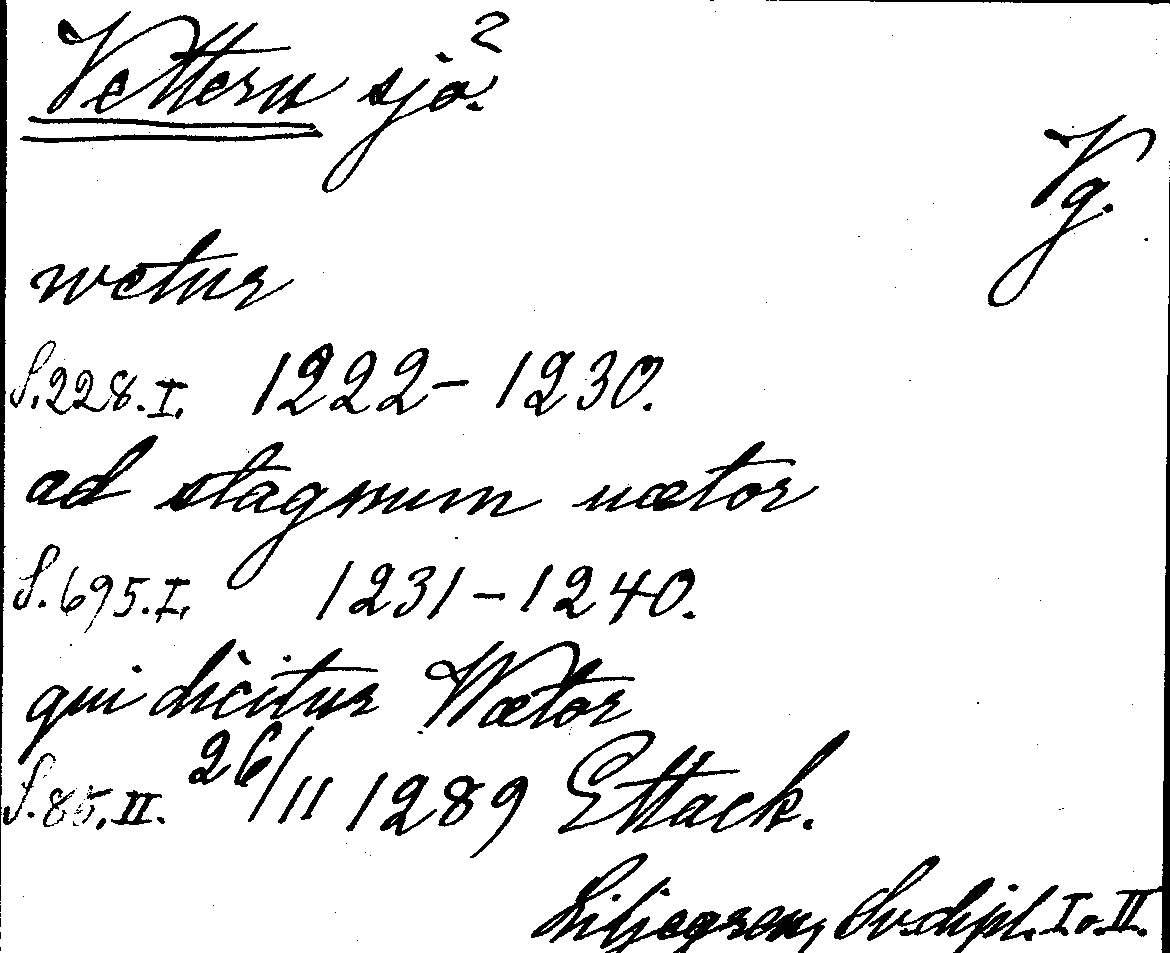 Vettern sjö?
Vg.
wetur
S. 228. I. 1222 – 1230.
ad stagnum uætor
S. 695. I. 1231 – 1240.
qui dicitur Wætor
S. 85. II. 26/11 1289 Ettack.
Liljegren, Sv. dipl. I o. II.